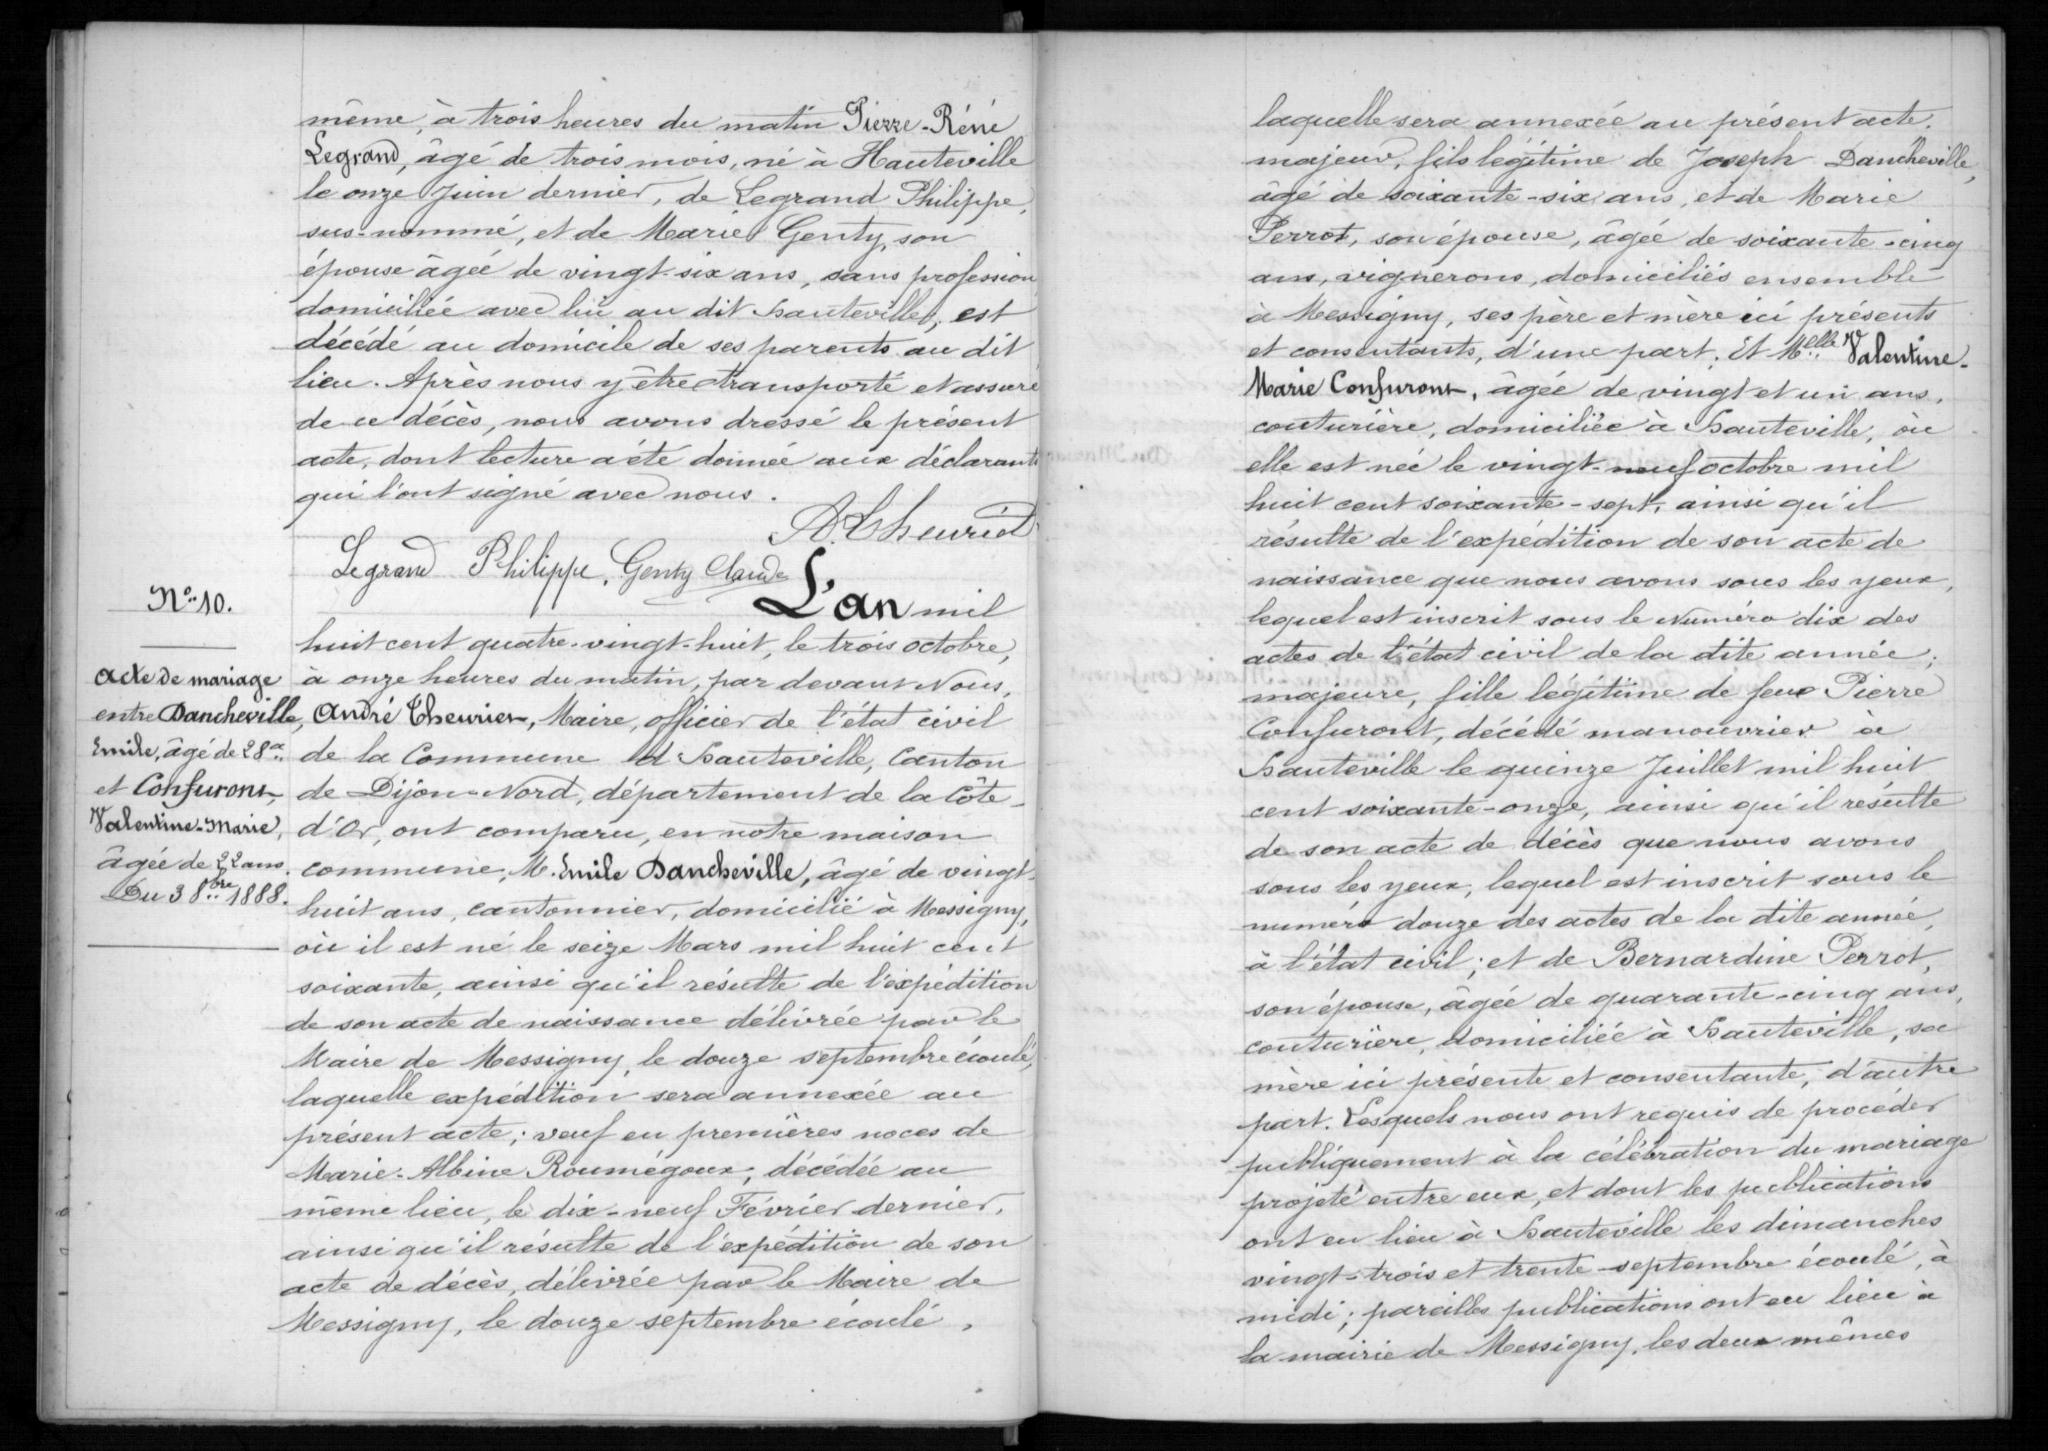 même, à trois heures du matin Pierre-Réné
Legrand, âgé de trois mois, né à Hauteville
le onze Juin dernier, de Legrand Philippe,
sus-nommé, et de Marie Genty, son
épouse âgée de vingt-six ans, sans profession
domiciliée avec lui au dit Hauteville, est
décédé au domicile de ses parents au dit
lieu. Après nous y être transporté et assuré
de ce décès, nous avons dressé le présent
acte, dont lecture a été donnée aux déclarants
qui l'ont signé avec nous.
A. Theuriet
Legrand Philippe, Genty Claude
N° 10.
Acte de mariage
entre Dancheville,
Emile, âgé de 28 a.
et Confuront,
Valentine-Marie,
âgée de 22 ans.
Du 3 8bre 1888.
L'an mil
huit cent quatre-vingt-huit, le trois octobre,
à onze heures du matin, par devant Nous,
André Theuriet, Maire, officier de l'état civil
de la Commune d'Hauteville, Canton
de Dijon-Nord, département de la Côte-
d'Or, ont comparu, en notre maison
commune, M. Emile Dancheville, âgé de vingt-
huit ans, cantonnier, domicilié à Messigny,
où il est né le seize Mars mil huit cent
soixante, ainsi qu'il résulte de l'expédition
de son acte de naissance délivrée par le
Maire de Messigny, le douze septembre écoulé,
laquelle expédition sera annexée au
présent acte; veuf en premières noces de
Marie-Albine Roumégoux, décédée au
même lieu, le dix-neuf Février dernier,
ainsi qu'il résulte de l'expédition de son
acte de décès, délivrée par le Maire de
Messigny, le douze septembre écoulé,
laquelle sera annexée au présent acte.
majeur, fils légitime de Joseph Dancheville,
âgé de soixante-six ans, et de Marie
Perrot, son épouse, âgée de soixante-cinq
ans, vignerons, domiciliés ensemble
à Messigny, ses père et mère ici présents
et consentants, d'une part. Et Melle Valentine-
Marie Confuront, âgée de vingt et un ans,
couturière, domiciliée à Hauteville, où
elle est née le vingt-neuf octobre mil
huit cent soixante-sept, ainsi qu'il
résulte de l'expédition de son acte de
naissance que nous avons sous les yeux,
lequel est inscrit sous le Numéro dix des
actes de l'état civil de la dite année;
majeure, fille légitime de feux Pierre
Confuront, décédé manouvrier à
Hauteville le quinze Juillet mil huit
cent soixante-onze, ainsi qu'il résulte
de son acte de décès que nous avons
sous les yeux, lequel est inscrit sous le
numéro douze des actes de la dite année,
à l'état civil; et de Bernardine Perrot,
son épouse, âgée de quarante-cinq ans,
couturière, domiciliée à Hauteville, sa
mère ici présente et consentante, d'autre
part. Lesquels nous ont requis de procéder
publiquement à la célébration du mariage
projeté entre eux, et dont les publications
ont eu lieu à Hauteville les dimanches
vingt-trois et trente septembre écoulé, à
midi; pareilles publications ont eu lieu à
la mairie de Messigny, les deux mêmes